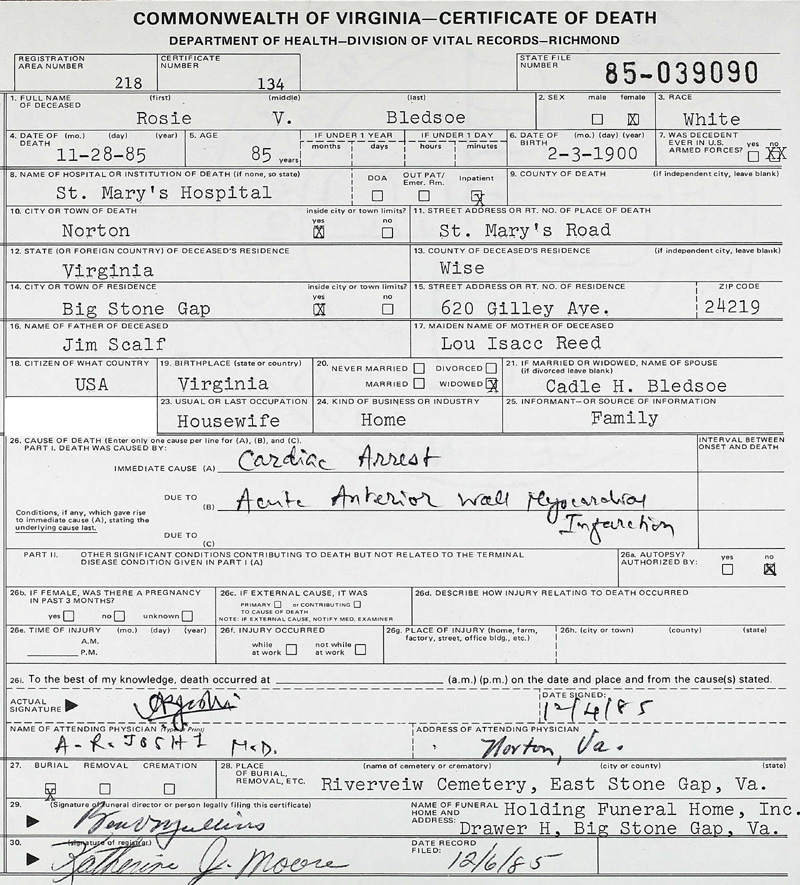 COMMONWEALTH OF VIRGINIA—CERTIFICATE OF DEATH
DEPARTMENT OF HEALTH—DIVISION OF VITAL RECORDS—RICHMOND
REGISTRATION AREA NUMBER 218 CERTIFICATE NUMBER 134 STATE FILE NUMBER 85-039090
1. FULL NAME OF DECEASED (first) (middle) (last) 2. SEX male female 3. RACE
Rosie V. Bledsoe X White
4. DATE OF DEATH (mo.) (day) (year) 5. AGE IF UNDER 1 YEAR IF UNDER 1 DAY 6. DATE OF BIRTH (mo.) (day) (year) 7. WAS DECEDENT EVER IN U.S. ARMED FORCES? yes no
months days hours minutes
11-28-85 85 years 2-3-1900 XX
8. NAME OF HOSPITAL OR INSTITUTION OF DEATH (if none, so state) DOA OUT PAT/ Emer. Rm. Inpatient 9. COUNTY OF DEATH (if independent city, leave blank)
St. Mary's Hospital X
10. CITY OR TOWN OF DEATH inside city or town limits? yes no 11. STREET ADDRESS OR RT. NO. OF PLACE OF DEATH
Norton X St. Mary's Road
12. STATE (OR FOREIGN COUNTRY) OF DECEASED'S RESIDENCE 13. COUNTY OF DECEASED'S RESIDENCE (if independent city, leave blank)
Virginia Wise
14. CITY OR TOWN OF RESIDENCE inside city or town limits? yes no 15. STREET ADDRESS OR RT. NO. OF RESIDENCE ZIP CODE
Big Stone Gap X 620 Gilley Ave. 24219
16. NAME OF FATHER OF DECEASED 17. MAIDEN NAME OF MOTHER OF DECEASED
Jim Scalf Lou Isacc Reed
18. CITIZEN OF WHAT COUNTRY 19. BIRTHPLACE (state or country) 20. NEVER MARRIED DIVORCED 21. IF MARRIED OR WIDOWED, NAME OF SPOUSE
(if divorced leave blank)
USA Virginia MARRIED WIDOWED X Cadle H. Bledsoe
23. USUAL OR LAST OCCUPATION 24. KIND OF BUSINESS OR INDUSTRY 25. INFORMANT—OR SOURCE OF INFORMATION
Housewife Home Family
26. CAUSE OF DEATH (Enter only one cause per line for (A), (B), and (C). INTERVAL BETWEEN ONSET AND DEATH
PART I. DEATH WAS CAUSED BY:
IMMEDIATE CAUSE (A) Cardiac Arrest
DUE TO
(B) Acute Anterior wall Myocardial
Infarction
Conditions, if any, which gave rise to immediate cause (A), stating the underlying cause last.
DUE TO
(C)
PART II. OTHER SIGNIFICANT CONDITIONS CONTRIBUTING TO DEATH BUT NOT RELATED TO THE TERMINAL DISEASE CONDITION GIVEN IN PART I (A) 26a. AUTOPSY? AUTHORIZED BY: yes no
X
26b. IF FEMALE, WAS THERE A PREGNANCY IN PAST 3 MONTHS? 26c. IF EXTERNAL CAUSE, IT WAS 26d. DESCRIBE HOW INJURY RELATING TO DEATH OCCURRED
PRIMARY or CONTRIBUTING
TO CAUSE OF DEATH
yes no unknown NOTE: IF EXTERNAL CAUSE, NOTIFY MED. EXAMINER
26e. TIME OF INJURY (mo.) (day) (year) 26f. INJURY OCCURRED 26g. PLACE OF INJURY (home, farm, factory, street, office bldg., etc.) 26h. (city or town) (county) (state)
A.M.
P.M. while at work not while at work
26i. To the best of my knowledge, death occurred at (a.m.) (p.m.) on the date and place and from the cause(s) stated.
ACTUAL SIGNATURE DATE SIGNED: 12/4/85
NAME OF ATTENDING PHYSICIAN (Type or Print) ADDRESS OF ATTENDING PHYSICIAN
A-R-JOSHI M.D. Norton, Va.
27. BURIAL REMOVAL CREMATION 28. PLACE OF BURIAL, REMOVAL, ETC. (name of cemetery or crematory) (city or county) (state)
X Riverveiw Cemetery, East Stone Gap, Va.
29. (Signature of funeral director or person legally filing this certificate) NAME OF FUNERAL HOME AND ADDRESS: Holding Funeral Home, Inc.
Drawer H, Big Stone Gap, Va.
30. (signature of registrar) DATE RECORD FILED:
Katherine J. Moore 12/6/85